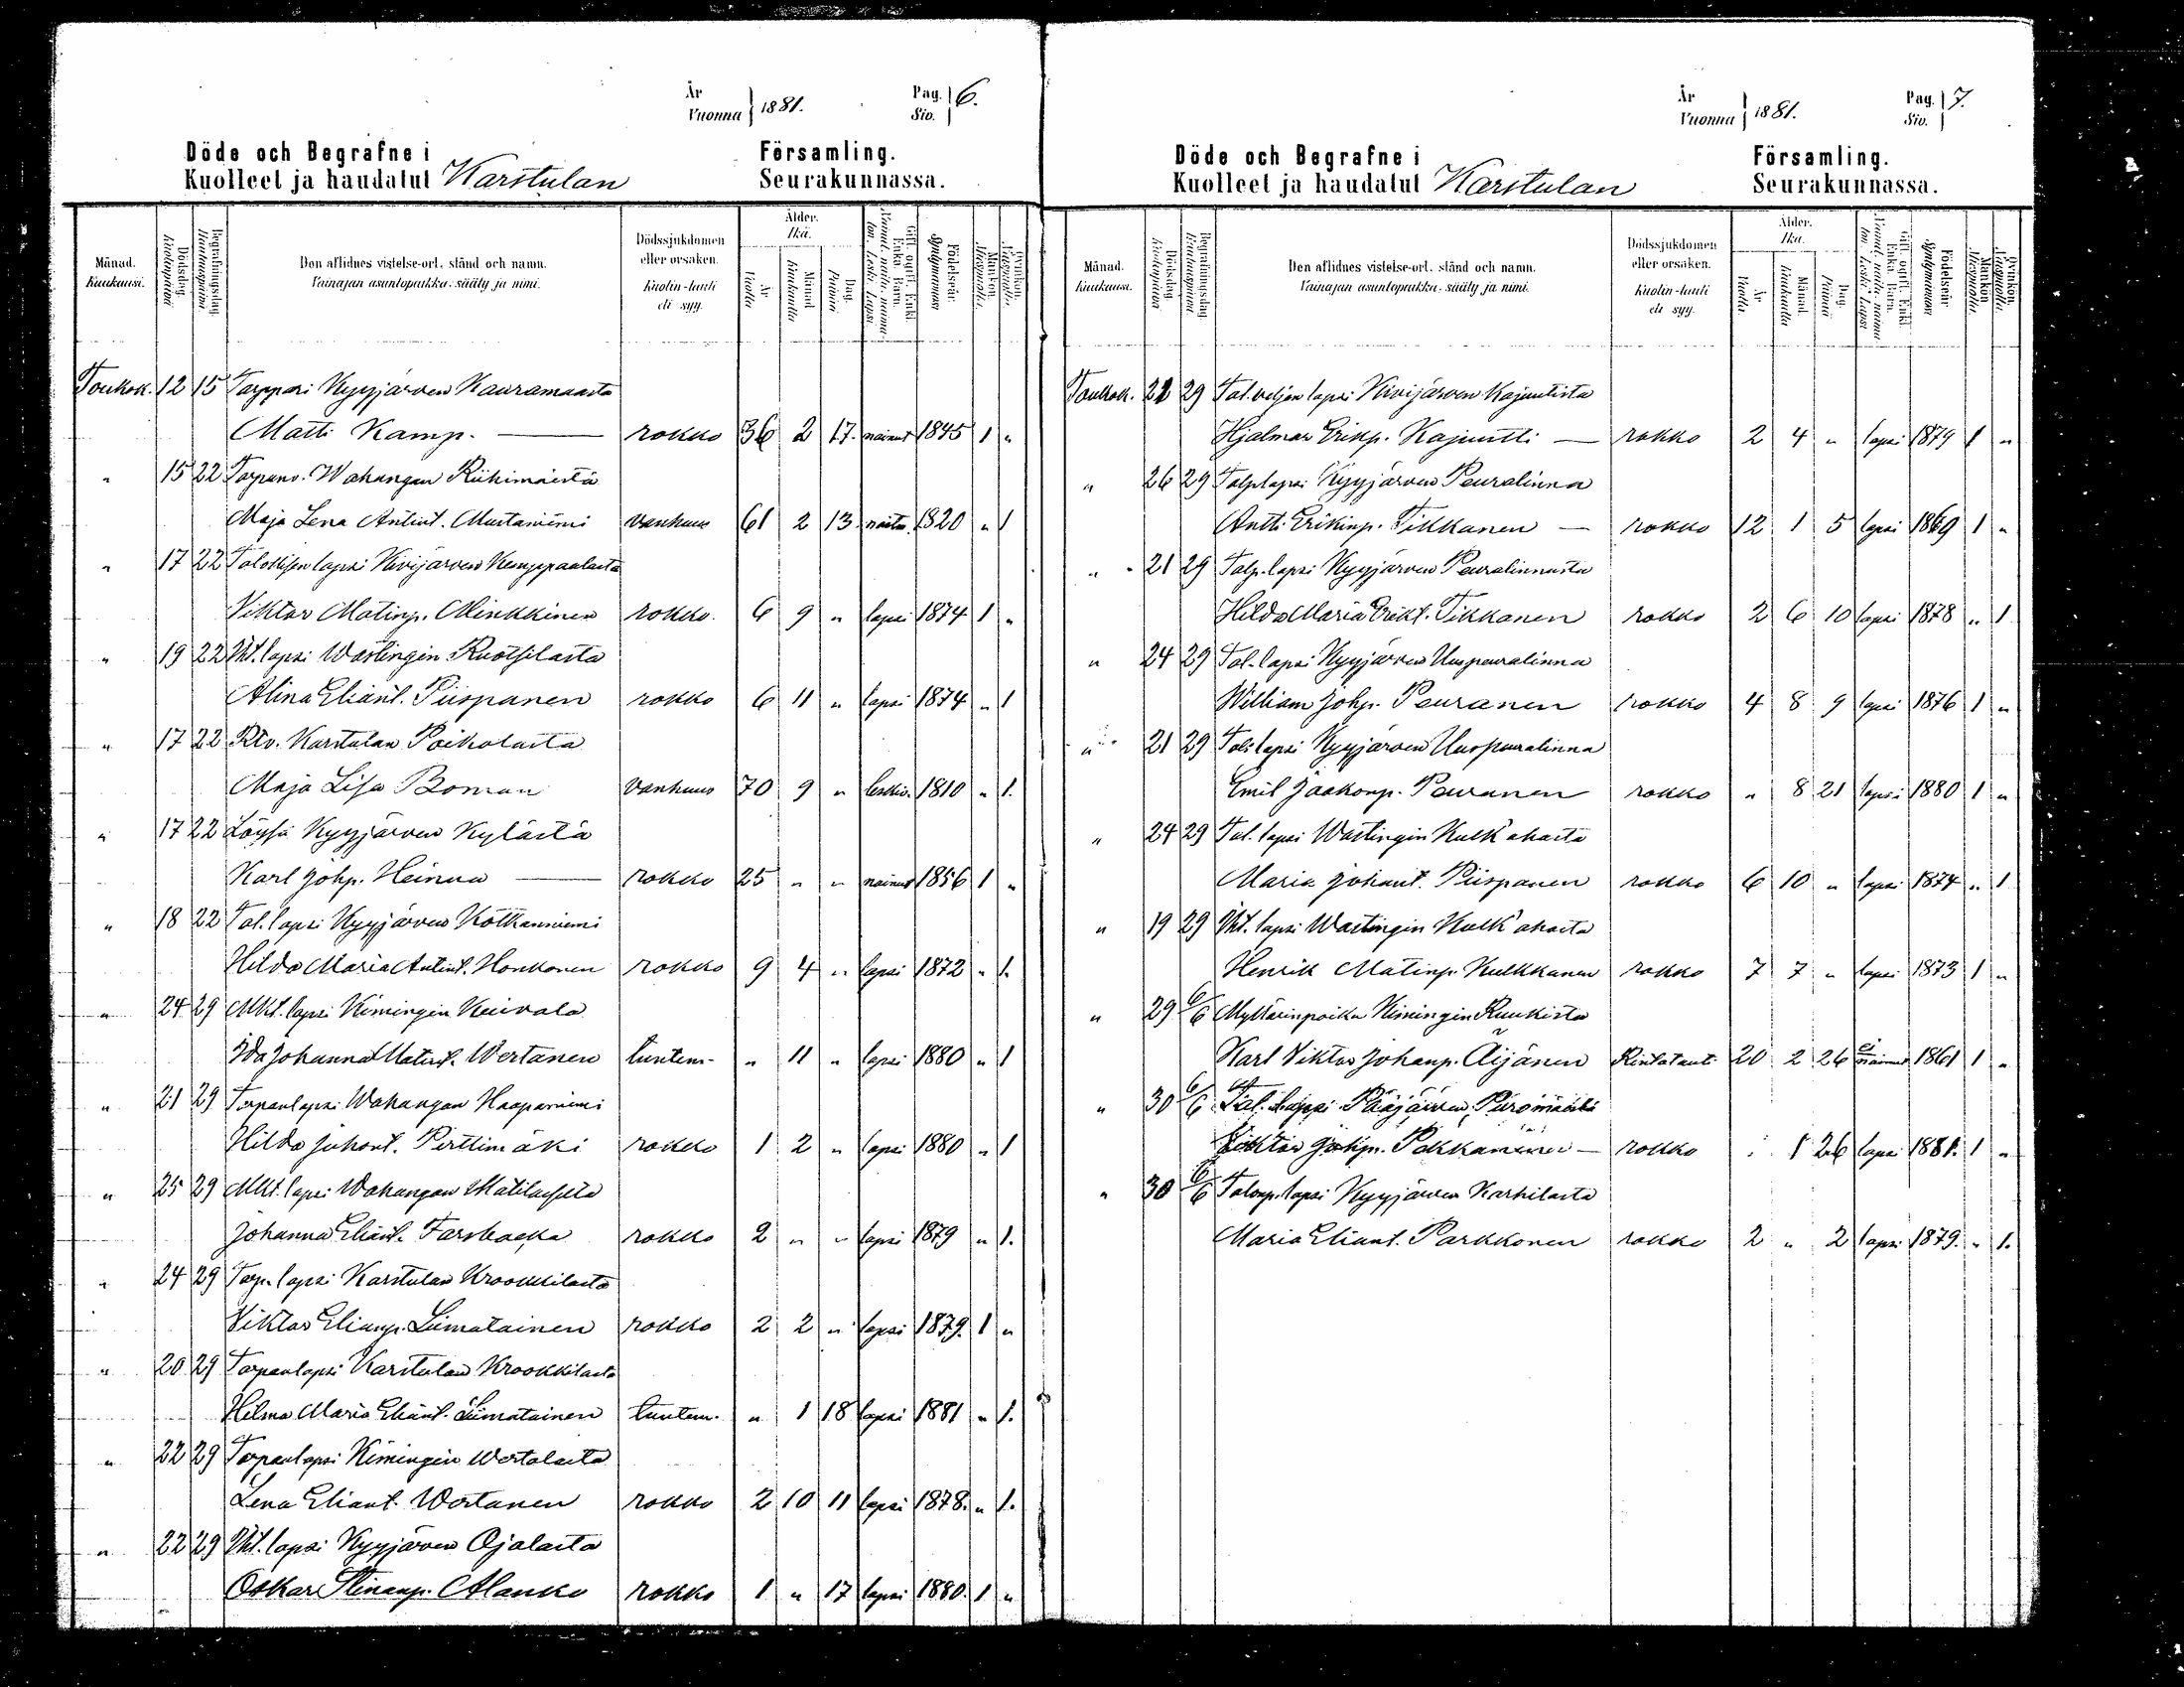 År
Vuonna } 1881.
Pag.
Siv. | 6.
Döde och Begrafne i
Kuolleet ja haudatut Karstulan
Församling.
Seurakunnassa.
Månad.
Kuukausi.
Dödsdag.
Kuolinpäivä.
Begrafningsdag.
Hautauspäivä.
Den aflidnes vistelse-ort, stånd och namn.
Vainajan asuntopaikka, sääty ja nimi.
Dödssjukdomen
eller orsaken.
Kuolin-tauti
eli syy.
Ålder.
Ikä.
År.
Vuotta.
Månad.
Kuukautta.
Dag.
Päivää.
Gift, ogift, Enkl.
Enka, Barn.
Födelseår.
Syntymävuosi.
Mankön.
Miespuolta.
Qvinkön.
Toukok. 12 15 Torppari Kyyjärven Kauramaasta
Matti Kamp. — rokko 36 2 17. nainut 1845 1 "
" 15 22 Torpanv. Wahangan Riihimäestä
Maja Lena Antint. Mustaniemi vanhuus 61 2 13 naitu. 1820 " 1
" 17 22 lapsi Kivijärven Kemppaalasta
Viktor Matinp. Minkkinen rokko. 6 9 " lapsi 1874 1 "
" 19 22 Iht. lapsi Wastingin Ruotsilasta
Alina Eliant. Piispanen rokko 6 11 " lapsi 1874 " 1
" 17 22 Rtv. Karstulan Poikolasta
Maja Lisa Boman vanhuus 70 9 " leski. 1810 " 1.
" 17 22 Löysä Kyyjärven Kylästä
Karl Johp. Heinua — rokko 25 " " nainut 1856 1 "
" 18 22 Tal. lapsi Kyyjärven Kotkanniemi
Hilda Maria Antint. Honkonen rokko 9 4 " lapsi 1872 " 1.
" 24 29 Mkt. lapsi Kimingin Koivola
Ida Johanna Matint. Wertanen tuntem- " 11 " lapsi 1880 " 1
" 21 29 Torpanlapsi Wahangan Haapaniemi
Hilda Juhont. Perttimäki rokko 1 2 " lapsi 1880 " 1
" 25 29 Mkt. lapsi Wahangan
Johanna Eliant. Farsbacka rokko 2 " " lapsi 1879 " 1.
" 24 29 Torp. lapsi Karstulan Krookkilasta
Viktor Elianp. Liimatainen rokko 2 2 " lapsi 1879. 1 "
" 20 29 Torpanlapsi Karstulan Krookkilasta
Hilma Maria Eliant. Liimatainen tuntem. " 1 18 lapsi 1881 " 1.
" 22 29 Torpanlapsi Kimingin Wertalasta
Lena Eliant. Wertanen rokko 2 10 11 lapsi 1878. " 1.
" 22 29 Iht. lapsi Kyyjärven Ojalasta
Oskar Stinanp. Alanko rokko 1 " 17 lapsi 1880. 1 "
År
Vuonna } 1881.
Pag.
Siv. | 7.
Döde och Begrafne i
Kuolleet ja haudatut Karstulan
Församling.
Seurakunnassa.
Månad.
Kuukausi.
Dödsdag.
Kuolinpäivä.
Begrafningsdag.
Hautauspäivä.
Den aflidnes vistelse-ort, stånd och namn.
Vainajan asuntopaikka, sääty ja nimi.
Dödssjukdomen
eller orsaken.
Kuolin-tauti
eli syy.
Ålder.
Ikä.
År.
Vuotta.
Månad.
Kuukautta.
Dag.
Päivää.
Gift, ogift, Enkl.
Enka, Barn.
Födelseår.
Syntymävuosi.
Mankön
Miespuolta.
Qvinkön.
Toukok. 29 Tal. veljen lapsi Kivijärven Kajuutista
Hjalmar Erikp. Kajuutti — rokko 2 4 " lapsi 1879 1 "
" 26 29 Talp lapsi Kyyjärven Peuralinna
Antti Erikinp. Tikkanen — rokko 12 1 5 lapsi 1869 1 "
" 21 29 Talp. lapsi Kyyjärven Peuralinnasta
Hilda Maria Erikt. Tikkanen rokko 2 6 10 lapsi 1878 " 1
" 24 29 Tal. lapsi Kyyjärven Uuspeuralinna
William Johp. Peuranen rokko 4 8 9 lapsi 1876 1 "
" 21 29 Tal: lapsi Kyyjärven Uuspeuralinna
Emil Jaakonp. Peuranen rokko " 8 21 lapsi 1880 1 "
" 24 29 Tal. lapsi Wastingin Kulk'ahasta
Maria Johant. Piispanen rokko 6 10 " lapsi 1874 " 1
" 19 29 Iht. lapsi Wastingin Kulk'ahasta
Henrik Matinp. Kulkkanen rokko 7 7 " lapsi 1873 1 "
" 29 6/6 Myllärinpoika Kimingin Ruukista
Karl Viktor Johanp. Äijänen Rintataut. 20 2 26 ei nainut 1861 1 "
" 30 6/6 Pääjärven
Viktor Johp. — rokko 1 26 lapsi 1881. 1 "
" 30 6/6 Talonp. lapsi Kyyjärven Karhilasta
Maria Eliant. Parkkonen rokko 2 " 2 lapsi 1879. " 1.